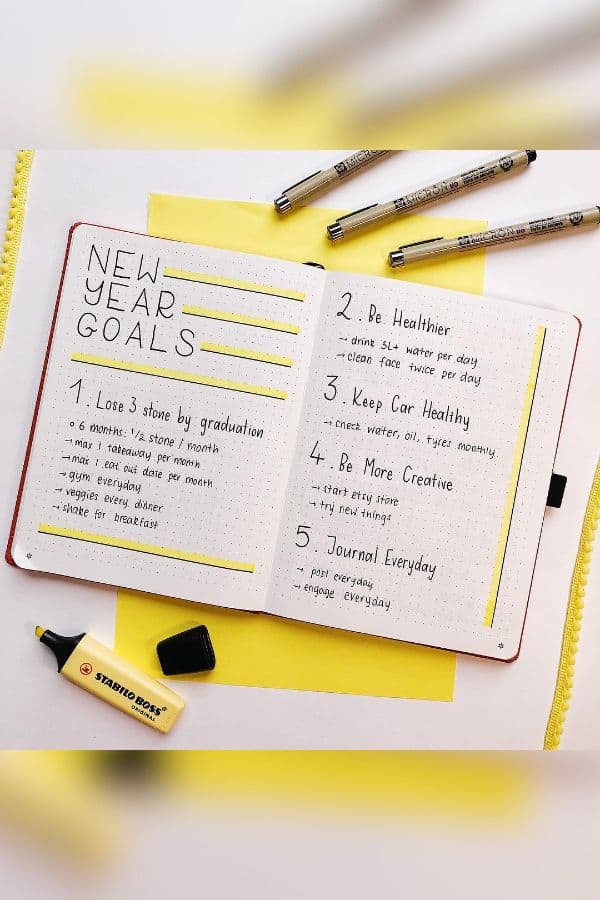 NEW
YEAR
GOALS
1. Lose 3 stone by graduation
6 months: 1/2 stone / month
→ max 1 takeaway per month
→ max 1 eat out date per month
→ gym everyday
→ veggies every dinner
→ shake for breakfast
2. Be Healthier
→ drink 3L+ water per day
→ clean face twice per day
3. Keep Car Healthy
→ check water, oil, tyres monthly
4. Be More Creative
→ start etsy store
→ try new things
5. Journal Everyday
→ post everyday
→ engage everyday
MICRON
MICRON
MICRON
STABILO BOSS
ORIGINAL